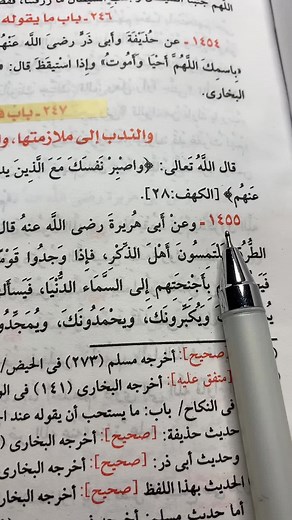 اللَّهُمَّ جَنِّبْنَا
٢٤٦ - باب ما يقوله
١٤٥٤ - عن حُذَيْفَةَ وأبى ذَرٍّ رضى الله عَنْهُ
«بِاسمِكَ اللَّهُمَّ أَحْيَا وَأَمُوتُ» وإذا استيقظَ قالَ:
البخارى.
٢٤٧ - باب
والندب إلى ملازمتها،
قال اللهُ تعالى: ﴿وَاصْبِرْ نَفْسَكَ مَعَ الَّذِينَ
عَنهُم﴾ [الكهف:٢٨].
١٤٥٥ - وعنْ أبى هُريرةَ رضى الله عنه قالَ
الطُّرُ يَلْتَمِسُونَ أَهْلَ الذِّكْرِ، فَإِذا وَجَدُوا قَوْمًا
بِأَجْنِحَتِهِم إلى السَّمَاء الدُّنْيَا، فَيَسأَلُ
وَيُكَبِّرُونَكَ، ويحْمَدُونَكَ، ويُمَجِّدُو
[صحيح]: أخرجه مسلم (٢٧٣) فى الحيض/
[متفق عليه]: أخرجه البخارى (١٤١) فى
فى النكاح/ باب: ما يستحب أن يقوله عند
حديث حذيفة: [صحيح]: أخرجه البخارى
وحديث أبى ذر: [صحيح]: أخرجه البخارى
الحديث بهذا اللفظ [صحيح]: أخرجه البخا
أما حديث مسلم أخرجه فى